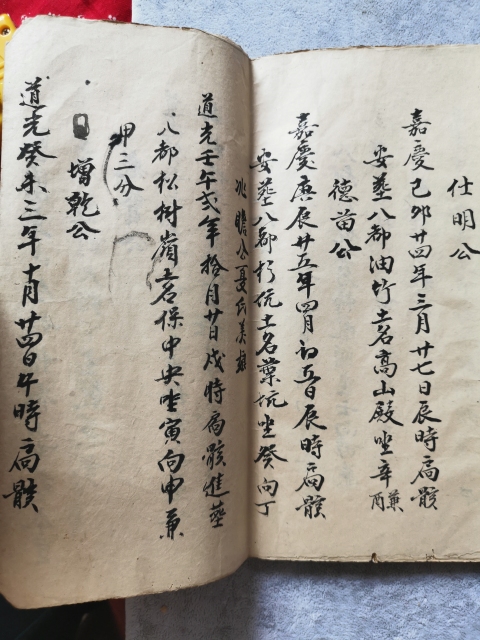 仕明公
嘉慶己卯廿四年三月廿七日辰時扄骸
安塟八都油竹土名髙山殿坐辛兼酉
德苗公
嘉慶庚辰廿五年四月初五日辰時扄骸
安塟八都圬坑土名葉坑坐癸向丁
兆瞻公夏氏美嫁
道光壬午弍年拾月廿日戌時扄骸進塟
八都松树嶺土名保中央坐寅向申兼
甲三分
增乾公
道光癸未三年十月廿四日午時扄骸